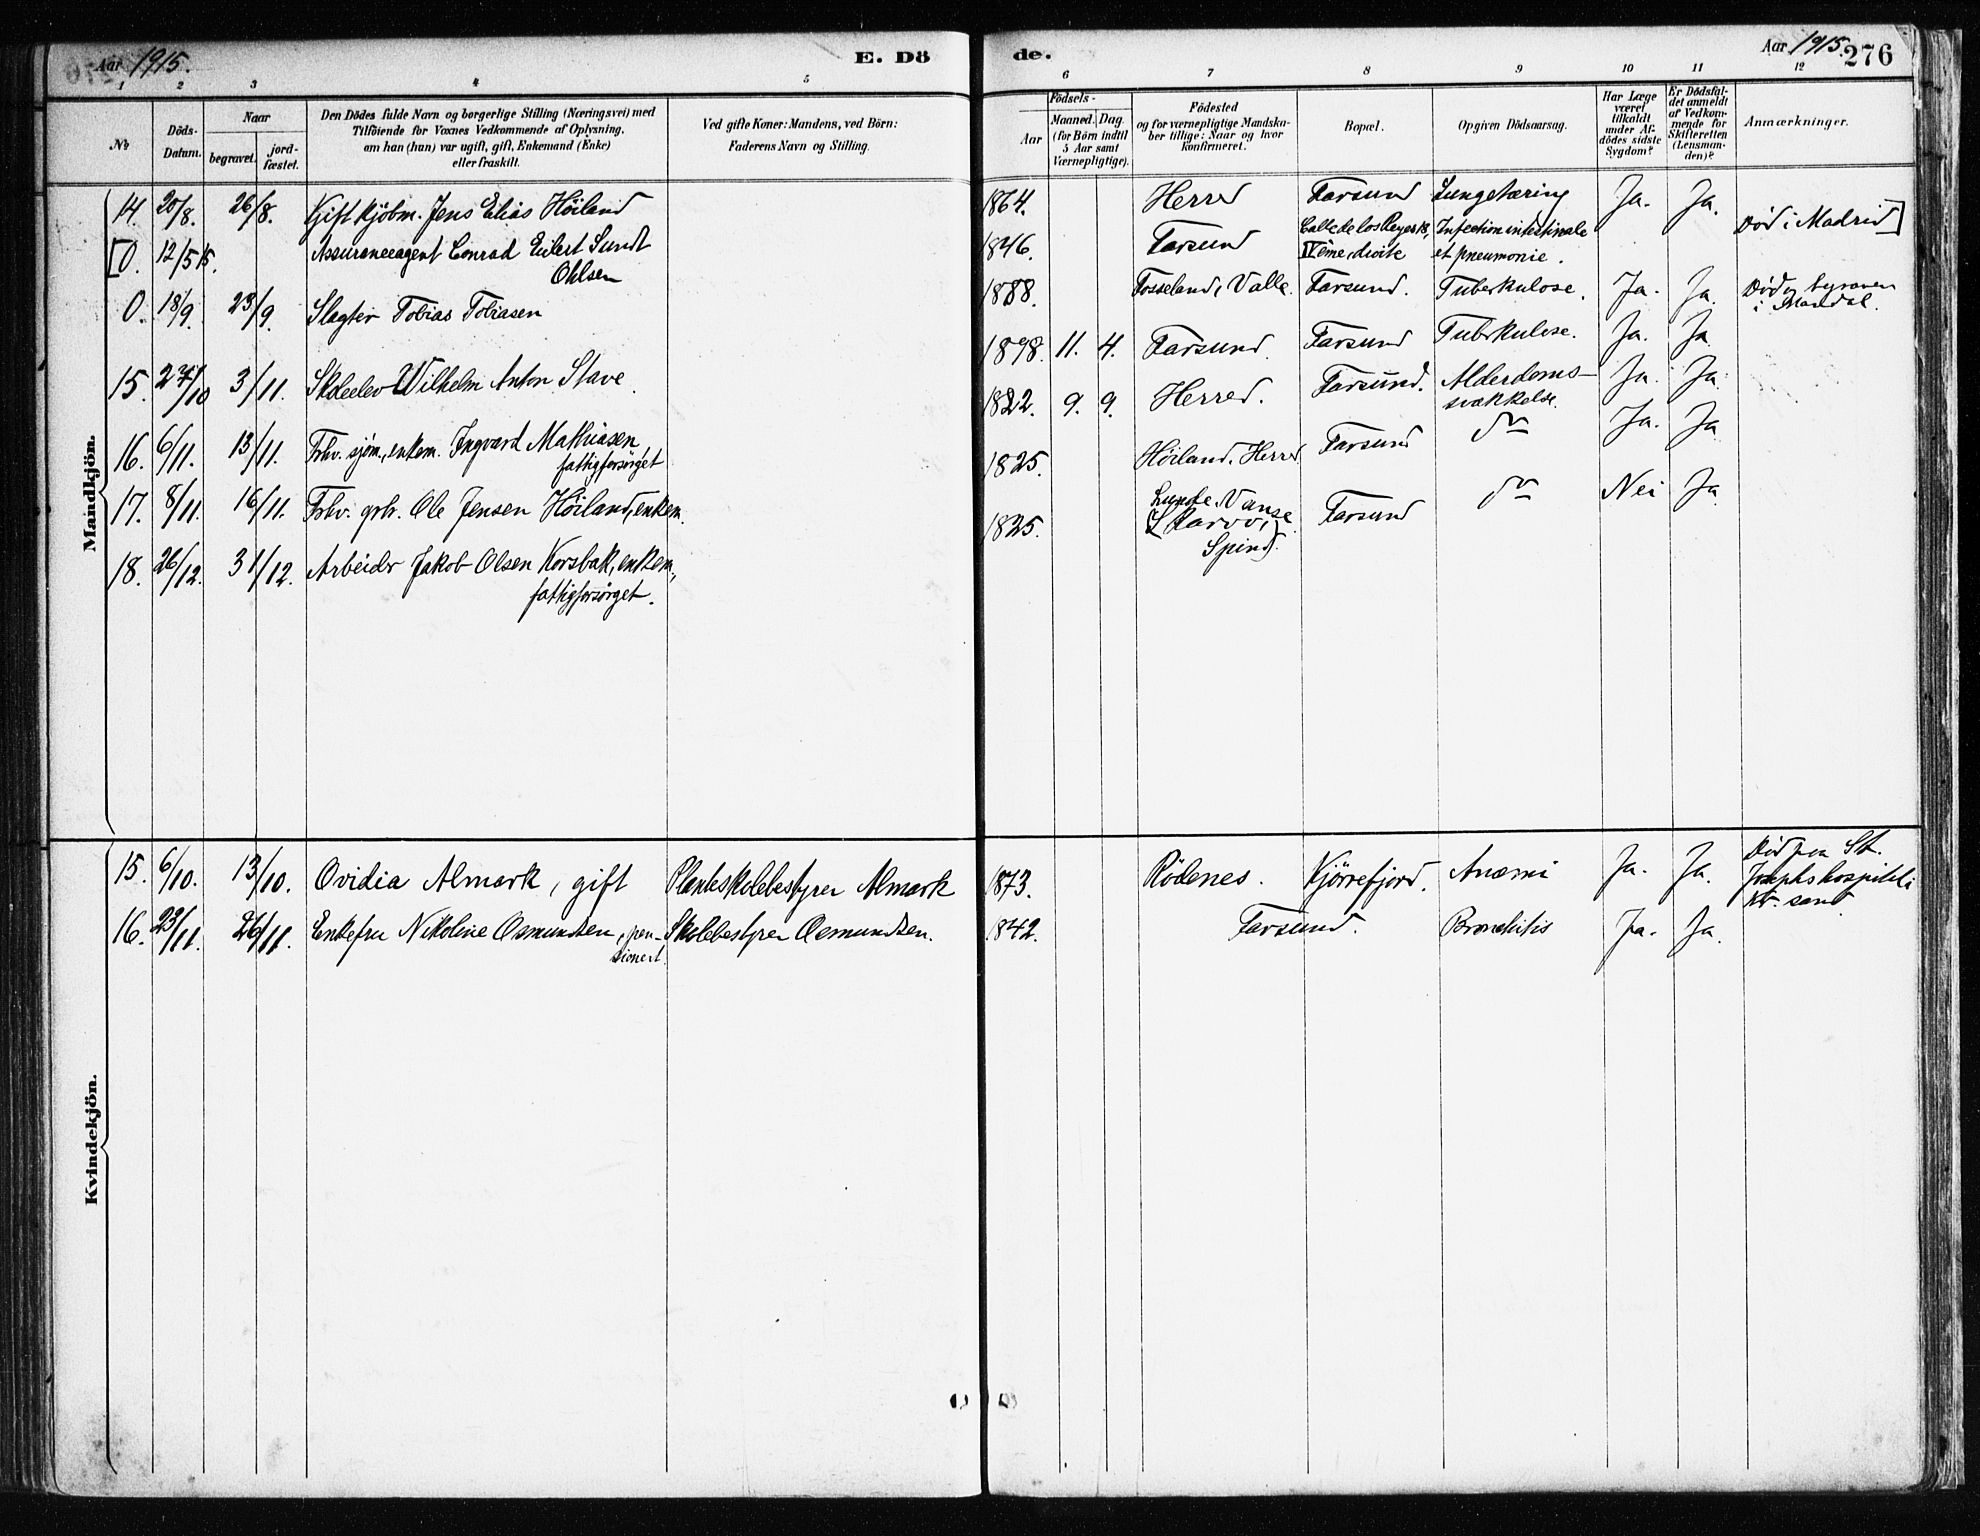 Aar 1915. E. Dö
1 2 3 4 5
№ Döds-Datum. Naar begravet. jordfæstet.
Den Dödes fulde Navn og borgerlige Stilling (Næringsvei) med
Tilföiende for Voxnes Vedkommende af Oplysning,
om han (hun) var ugift, gift, Enkemand (Enke)
eller fraskilt.
Ved gifte Koner: Mandens, ved Börn:
Faderens Navn og Stilling.
Mandkjön.
14. 20/8. 26/8. Gift kjøbm. Jens Elias Höiland
[0. 12/5 15. Assuranceagent Conrad Eilert Sundt
Ohlsen
0. 18/9. 23/9. Slagter Tobias Tobiasen
15. 27/10 3/11. Skoleelev Wilhelm Anton Stave.
16. 6/11. 13/11. Fhv. sjøm., enkem. Ingvard Mathiasen
fattigforsörget
17. 8/11. 16/11. Fhv. grb. Ole Jensen Höiland, enkem.
18. 26/12. 31/12. Arbeider Jakob Olsen Korsbak, enkem.,
fattigforsörget.
Kvindekjön.
15. 6/10. 13/10. Ovidia Almark, gift Planteskolebestyrer Almark
16. 23/11. 26/11. Enkefru Nikoline Osmundsen, pen- Skolebestyrer Osmundsen.
sionert.
de. Aar 1915. 276
6 7 8 9 10 11 12
Födsels-
Aar Maaned. Dag.
(for Börn indtil
5 Aar samt
Værnepligtige).
Födested
og for værnepligtige Mandska-
ber tillige: Naar og hvor
konfirmeret.
Bopæl.
Opgiven Dödsaarsag.
Har Læge
været
tilkaldt
under Af-
dödes sidste
Sygdom?
Er Dödsfal-
det anmeldt
af Vedkom-
mende for
Skifteretten
(Lensman-
den)?
Anmærkninger.
1864. Herred Farsund Lungetæring Ja. Ja.
1846. Farsund Calle de los Reyes 18, Infection intestinale Död i Madrid]
IVème, droite et pneumonie.
1888. Fosseland, Valle. Farsund. Tuberkulose. Ja. Ja. Död og begraven
i Mandal.
1898. 11. 4. Farsund. Farsund Tuberkulose. Ja. Ja
1822. 9. 9. Herred. Farsund. Alderdoms- Ja. Ja.
svækkelse.
1825. Höiland, Herred Farsund do Ja. Ja
1825. Lunde, Vanse Farsund do Nei Ja
Spind).
1873. Rödenes. Kjörrefjord. Anæmi Ja. Ja. Död paa St.
Josephs hospital i
Kr.sand
1842. Farsund. Bronchitis Ja. Ja.